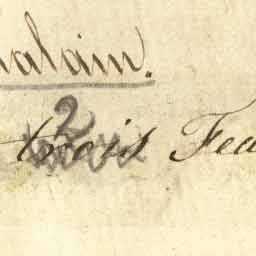 alain.
2
trois Feu